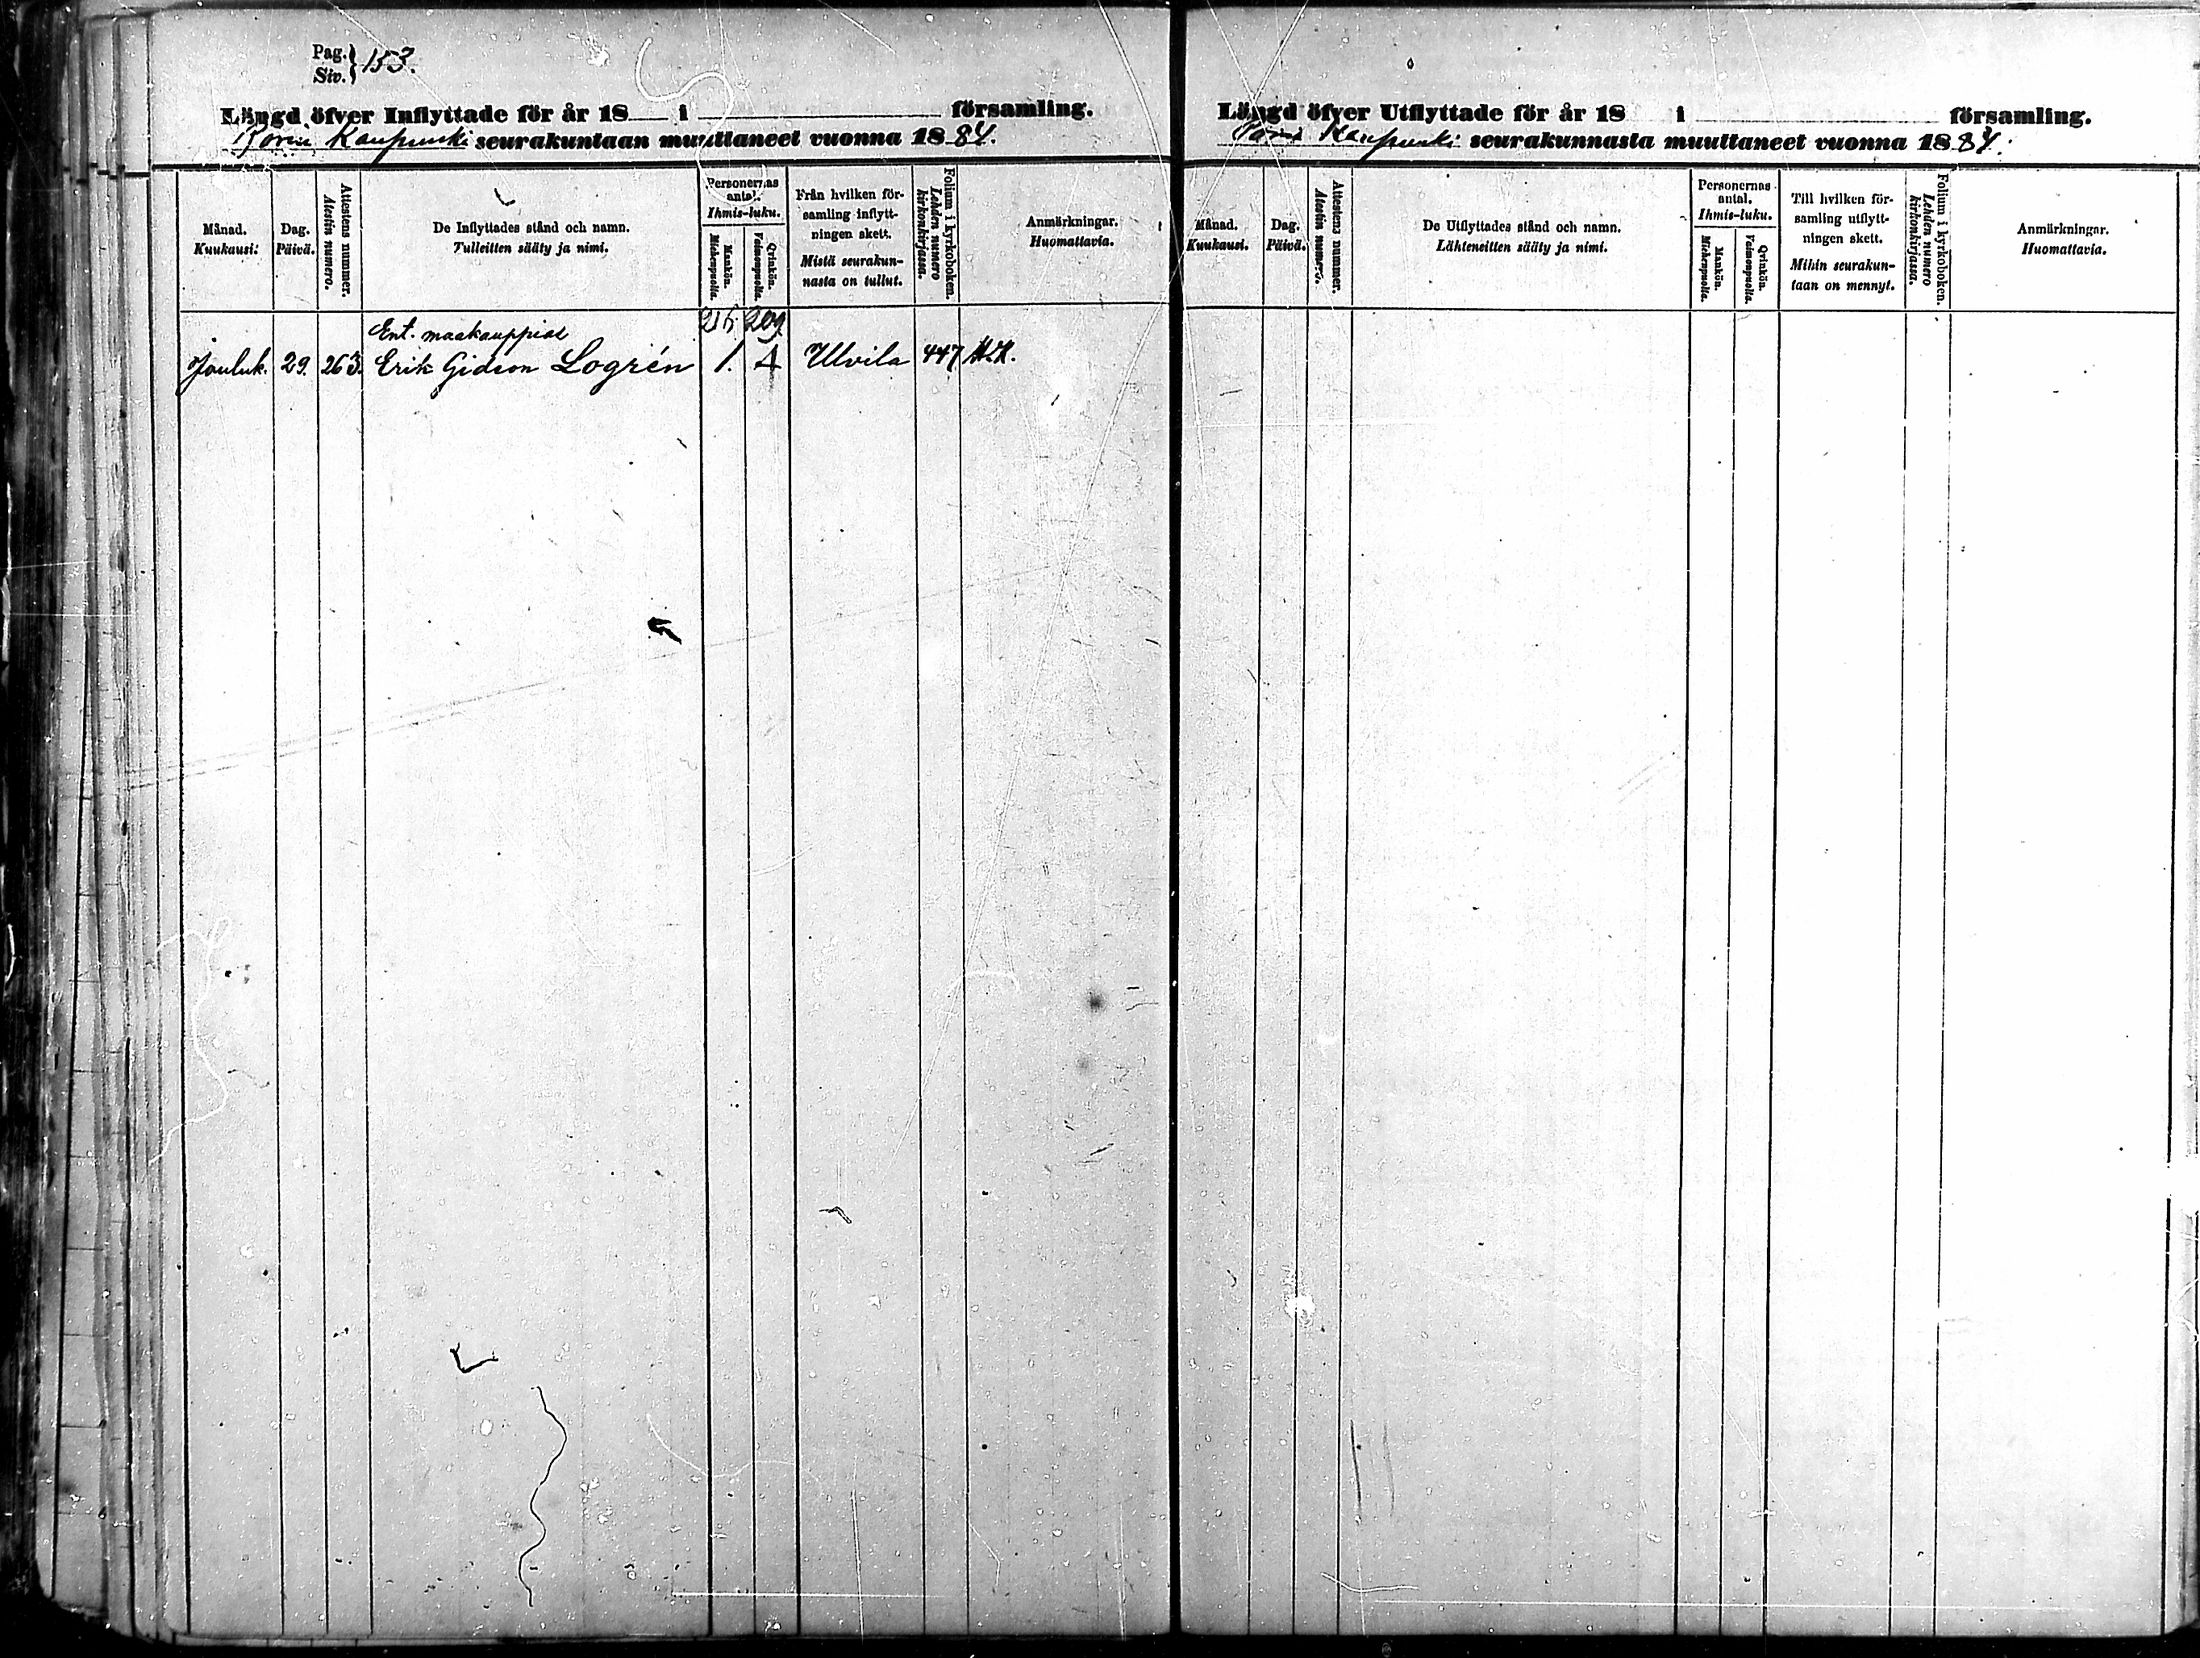 Pag. Siv. } 153.
Längd öfver Inflyttade för år 18 i församling.
Porin Kaupunki seurakuntaan muuttaneet vuonna 1884.
Månad. Kuukausi.
Dag. Päivä.
Attestens nummer. Atestin numero.
De Inflyttades stånd och namn. Tulleitten sääty ja nimi.
Personernas antal. Ihmis-luku.
Mankön. Miehenpuolia.
Qvinkön. Vaimonpuolia.
Från hvilken församling inflyttningen skett. Mistä seurakunnasta on tullut.
Folium i kyrkoboken. Lehden numero kirkonkirjassa.
Anmärkningar. Huomattavia.
216. 209.
Ent. maakauppias
Jouluk. 29. 263. Erik Gideon Logrén 1. 4 Ulvila 447
Längd öfver Utflyttade för år 18 i församling.
Porin Kaupunki seurakunnasta muuttaneet vuonna 1884.
Månad. Kuukausi.
Dag. Päivä.
Attestens nummer. Atestin numero.
De Utflyttades stånd och namn. Lähteneitten sääty ja nimi.
Personernas antal. Ihmis-luku.
Mankön. Miehenpuolia.
Qvinkön. Vaimonpuolia.
Till hvilken församling utflyttningen skett. Mihin seurakuntaan on mennyt.
Folium i kyrkoboken. Lehden numero kirkonkirjassa.
Anmärkningar. Huomattavia.